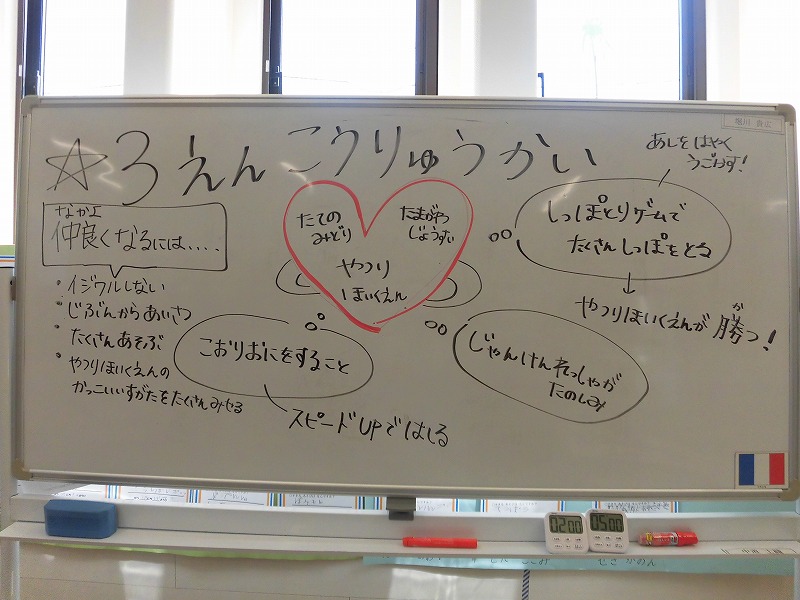 堀川 貴正
☆3えん こうりゅうかい
あしをはやく
うごかす!
なかよ
仲良くなるには....
・イジワルしない
・じぶんからあいさつ
・たくさんあそぶ
・やつりほいくえんの
かっこいいすがたをたくさんみせる
たての
みどり
たまがやつ
じょうすい
やつり
ほいくえん
しっぽとりゲームで
たくさんしっぽをとる
↓
が
やつりほいくえんが勝つ!
こおりおにをすること
スピードUPではしる
じゃんけんれっしゃが
たのしみ
0200
0500